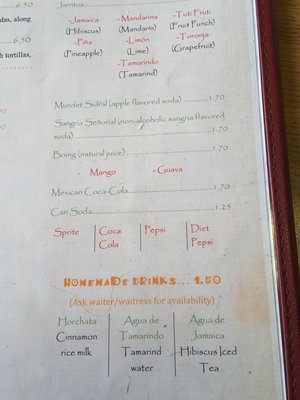 6.50
das, along
6.50
h tortillas,
Jarritos
-Jamaica -Mandarina -Tuti Fruti
(Hibiscus) (Mandarin) (Fruit Punch)
-Piña -Limón -Toronja
(Pineapple) (Lime) (Grapefruit)
-Tamarindo
(Tamarind)
Mundet Sidral (apple flavored soda) 1.70
Sangria Señorial (non-alcoholic sangria flavored
soda) 1.70
Boing (natural juice) 1.70
- Mango - Guava
Mexican Coca-Cola 1.70
Can Soda 1.25
Sprite Coca Pepsi Diet
Cola Pepsi
HOMEMADE DRINKS... 1.50
(Ask waiter/waitress for availability)
Horchata Agua de Agua de
Cinnamon Tamarindo Jamaica
rice milk Tamarind Hibiscus Iced
water Tea